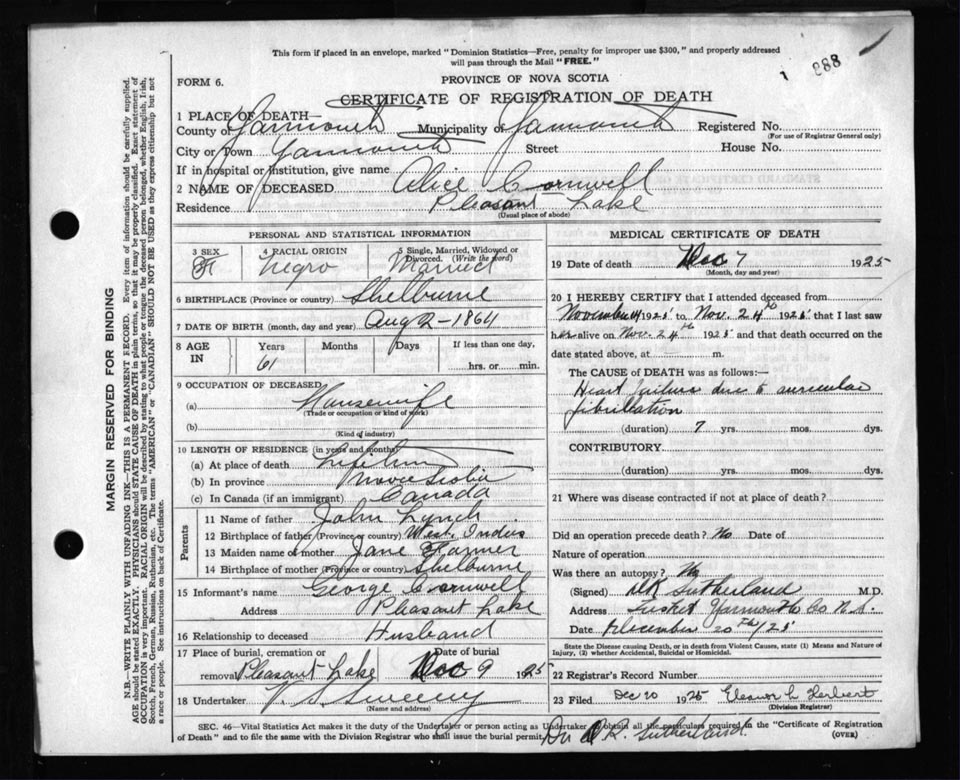 This form if placed in an envelope, marked "Dominion Statistics—Free, penalty for improper use $300," and properly addressed
will pass through the Mail "FREE."
1 888
FORM 6.
PROVINCE OF NOVA SCOTIA
CERTIFICATE OF REGISTRATION OF DEATH
1 PLACE OF DEATH—
County of Yarmouth Municipality of Yarmouth Registered No.
(For use of Registrar General only)
City or Town Yarmouth Street House No.
If in hospital or institution, give name
2 NAME OF DECEASED Alice Cornwell
Residence Pleasant Lake
(Usual place of abode)
PERSONAL AND STATISTICAL INFORMATION
3 SEX 4 RACIAL ORIGIN 5 Single, Married, Widowed or
Divorced. (Write the word)
F Negro Married
6 BIRTHPLACE (Province or country) Shelburne
7 DATE OF BIRTH (month, day and year) Aug 2 - 1864
8 AGE IN Years Months Days If less than one day,
61 hrs. or min.
9 OCCUPATION OF DECEASED
(a) Housewife
(Trade or occupation or kind of work)
(b)
(Kind of industry)
10 LENGTH OF RESIDENCE (in years and months)
(a) At place of death Lifetime
(b) In province Nova Scotia
(c) In Canada (if an immigrant) Canada
Parents
11 Name of father John Lynch
12 Birthplace of father (Province or country) West Indies
13 Maiden name of mother Jane Farmer
14 Birthplace of mother (Province or country) Shelburne
15 Informant's name George Cornwell
Address Pleasant Lake
16 Relationship to deceased Husband
17 Place of burial, cremation or Date of burial
removal Pleasant Lake Dec 9 1925
18 Undertaker V. S. Sweeny
(Name and address)
MEDICAL CERTIFICATE OF DEATH
19 Date of death Dec 7 1925
(Month, day and year)
20 I HEREBY CERTIFY that I attended deceased from
November 1925 to Nov. 24th 1925 that I last saw
her alive on Nov. 24th 1925 and that death occurred on the
date stated above, at m.
The CAUSE of DEATH was as follows:—
Heart failure due to auricular
fibrillation
(duration) 7 yrs. mos. dys.
CONTRIBUTORY.
(duration) yrs. mos. dys.
21 Where was disease contracted if not at place of death?
Did an operation precede death? No Date of
Nature of operation
Was there an autopsy? No
(Signed) Sutherland M.D.
Address Tusket Yarmouth Co N.S.
Date December 20th/25
State the Disease causing Death, or in death from Violent Causes, state (1) Means and Nature of
Injury, (2) whether Accidental, Suicidal or Homicidal.
22 Registrar's Record Number
23 Filed Dec 20 1925 Eleanor L Herbert
(Division Registrar)
SEC. 46—Vital Statistics Act makes it the duty of the Undertaker or person acting as Undertaker to obtain all the particulars required in the "Certificate of Registration
of Death" and to file the same with the Division Registrar who shall issue the burial permit.
Dr K. Sutherland
(OVER)
MARGIN RESERVED FOR BINDING
N.B.—WRITE PLAINLY WITH UNFADING INK—THIS IS A PERMANENT RECORD. Every item of information should be carefully supplied.
AGE should be stated EXACTLY. PHYSICIANS should STATE CAUSE OF DEATH in plain terms, so that it may be properly classified. Exact statement of
OCCUPATION is very important. RACIAL ORIGIN will be described by stating to what people or tongue the deceased person belonged, whether English, Irish,
Scotch, French, German, Russian, Ruthenian, etc. The terms "AMERICAN" or "CANADIAN" SHOULD NOT BE USED as they express citizenship but not
a race or people. See instructions on back of Certificate.